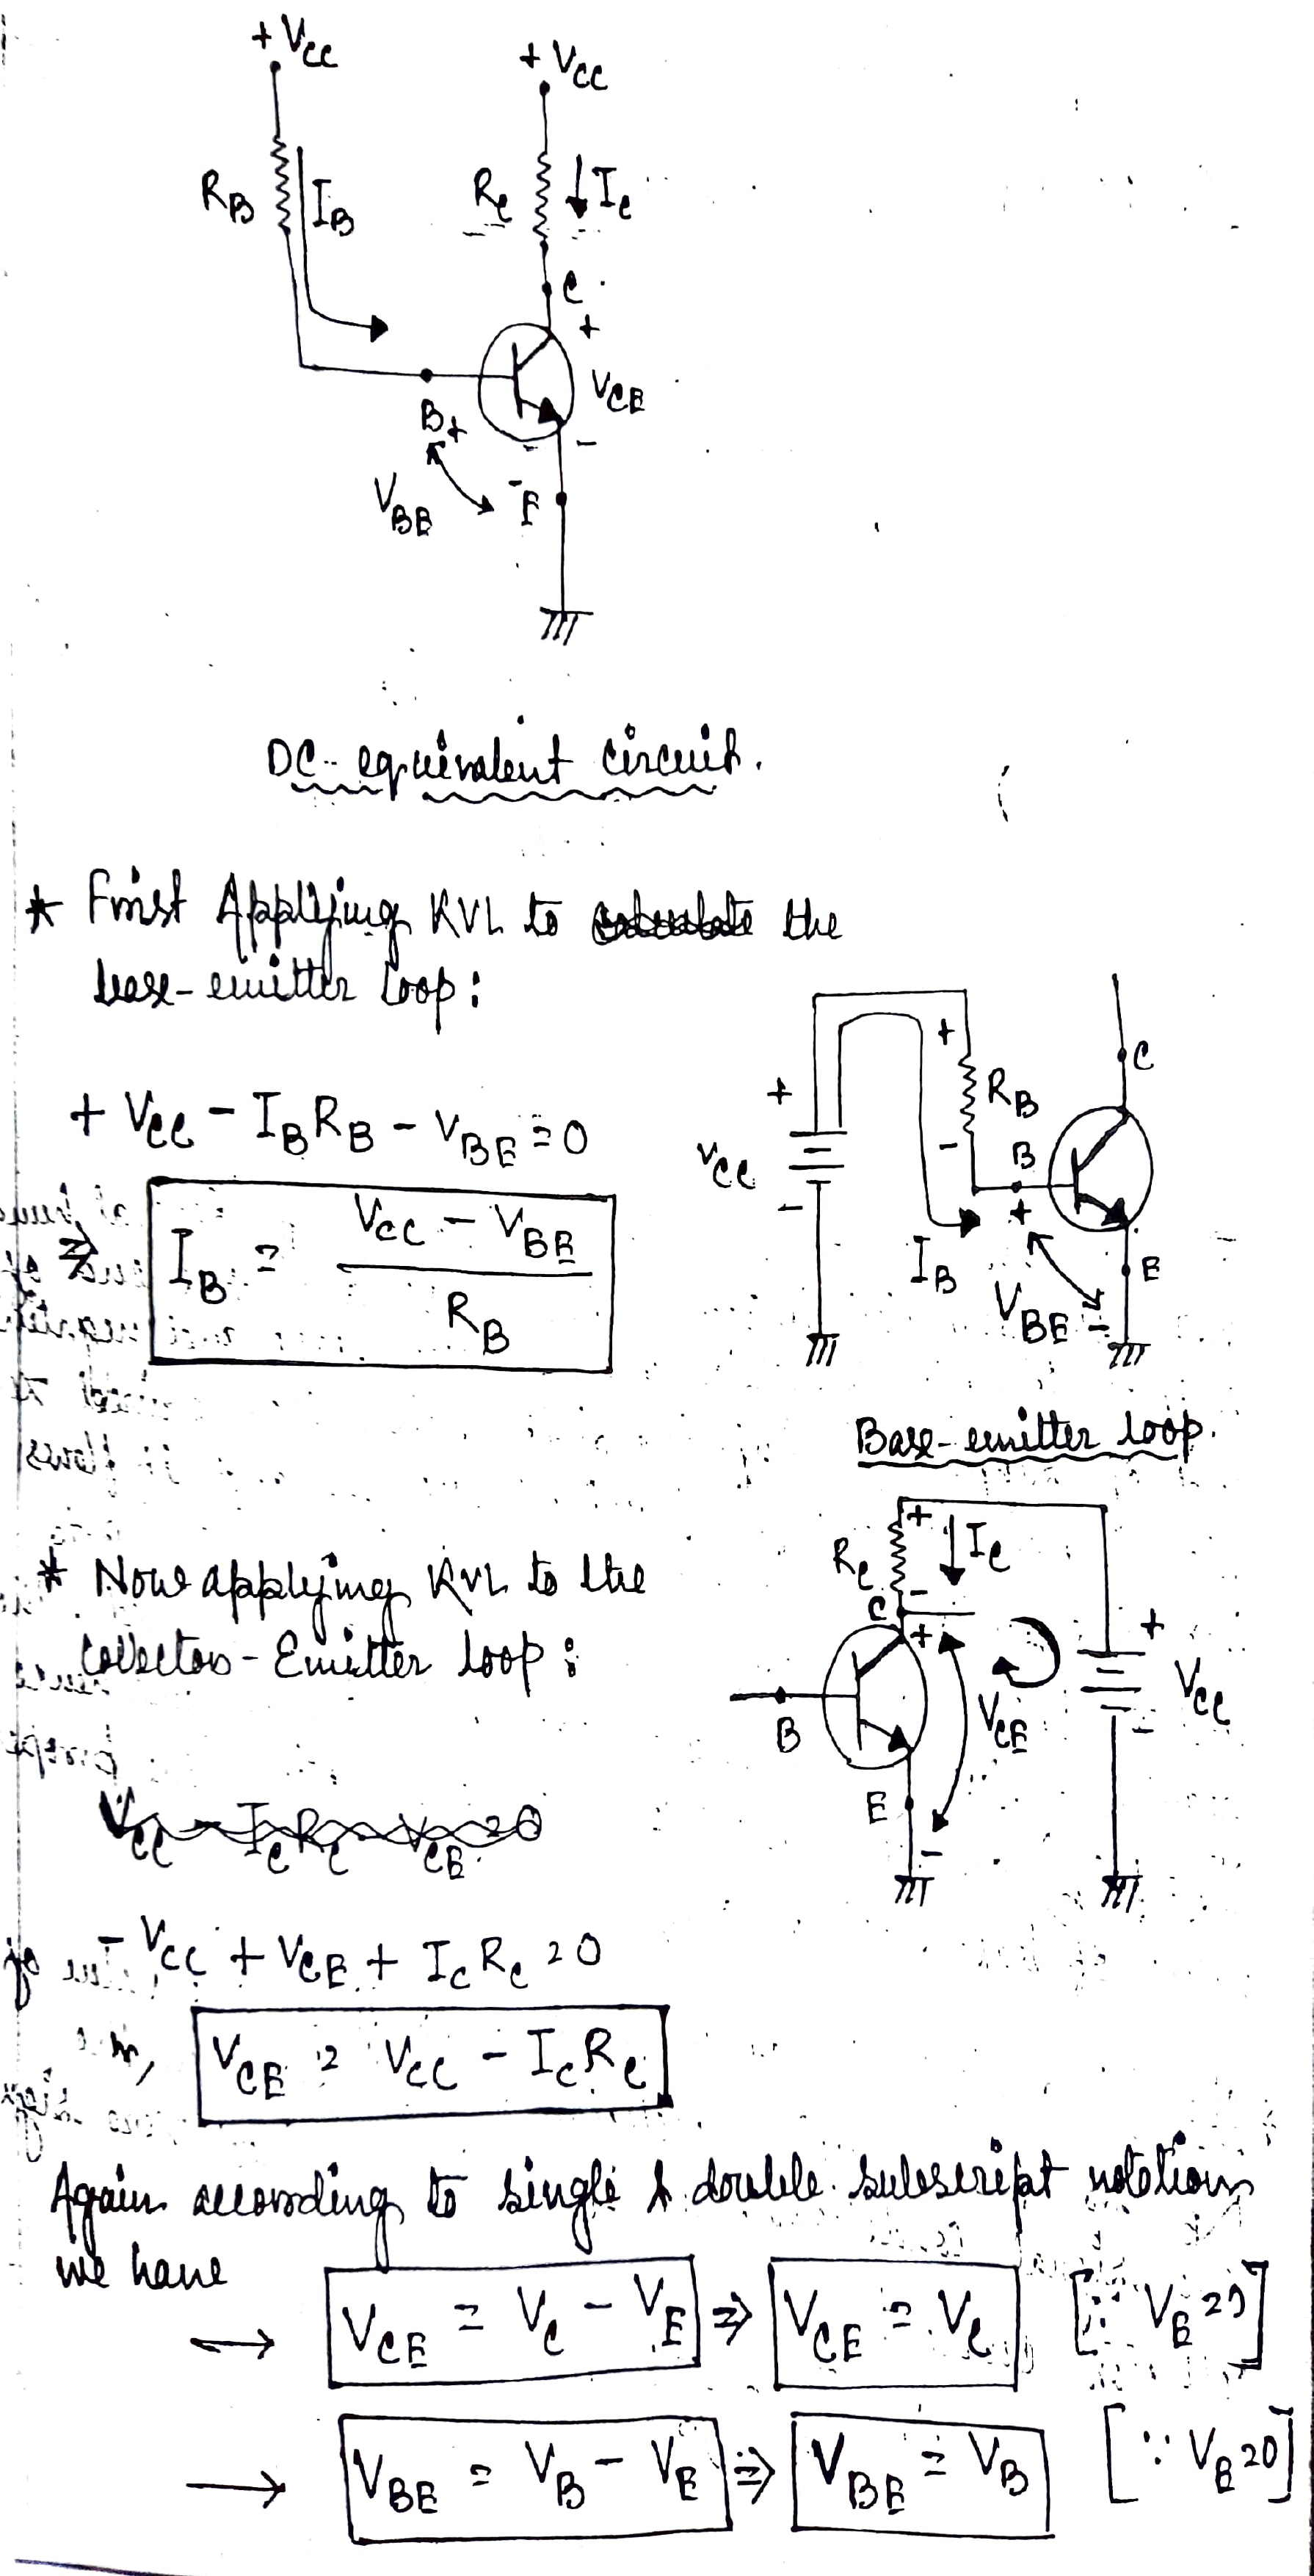 + VCC
+ VCC
RB
IB
RC
IC
C
+
VCE
B+
-
-
VBE
- E
DC-equivalent circuit.
* First Applying KVL to the
base-emitter loop:
+ VCC - IBRB - VBE = 0
⇒ IB = (VCC - VBE) / RB
C
+
+
RB
VCC
-
B
-
+
IB
E
VBE -
Base-emitter loop.
* Now applying KVL to the
Collector-Emitter loop:
+
RC
IC
-
C
+
+
VCC
B
VCE
-
E
-
VCC - IC RC - VCE = 0
- VCC + VCE + IC RC = 0
VCE = VCC - IC RC
Again according to single & double subscript notation
we have
→ VCE = VC - VE ⇒ VCE = VC [∵ VE = 0]
→ VBE = VB - VE ⇒ VBE = VB [∵ VE = 0]